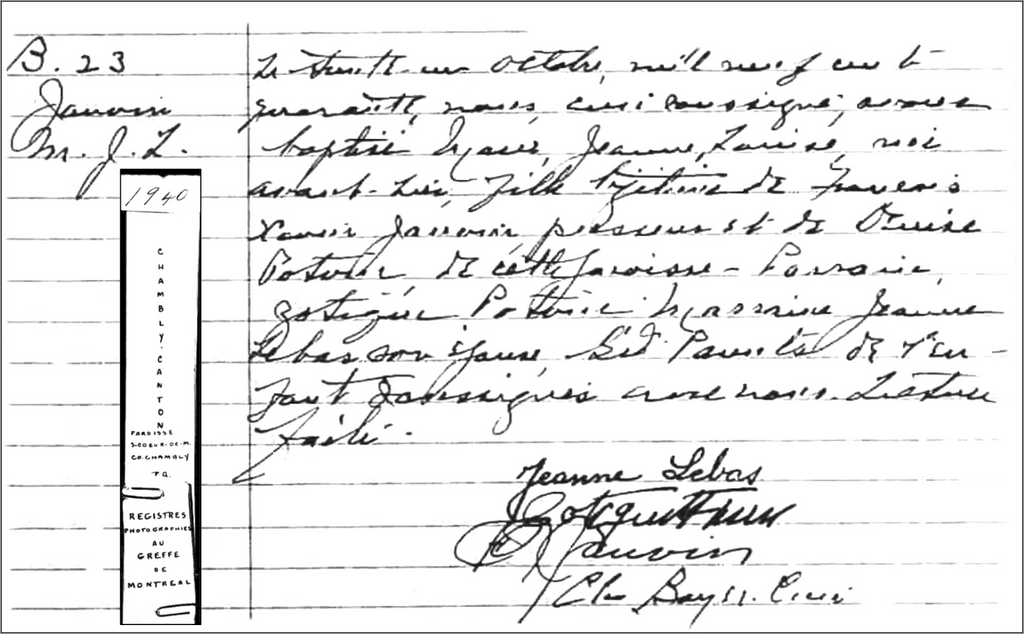 B. 23
Jauvin
M. J. L.
1940
CHAMBLY-CANTON
PAROISSE
S-COEUR-DE-M.
CO. CHAMBLY
P.Q.
REGISTRES
PHOTOGRAPHIÉS
AU
GREFFE
DE
MONTREAL
Le trente-un octobre, mil neuf cent
quarante, nous, curé soussigné, avons
baptisé Marie, Jeanne, Louise, née
avant-hier, fille légitime de François
Xavier Jauvin, et de Denise
Potvin de cette paroisse - Parrain,
Zotique Potvin Marraine Jeanne
Lebas son épouse, Gds Parents de l'en-
fant soussignés avec nous. Lecture
faite.
Jeanne Lebas
Zotique Potvin
Jauvin
Curé